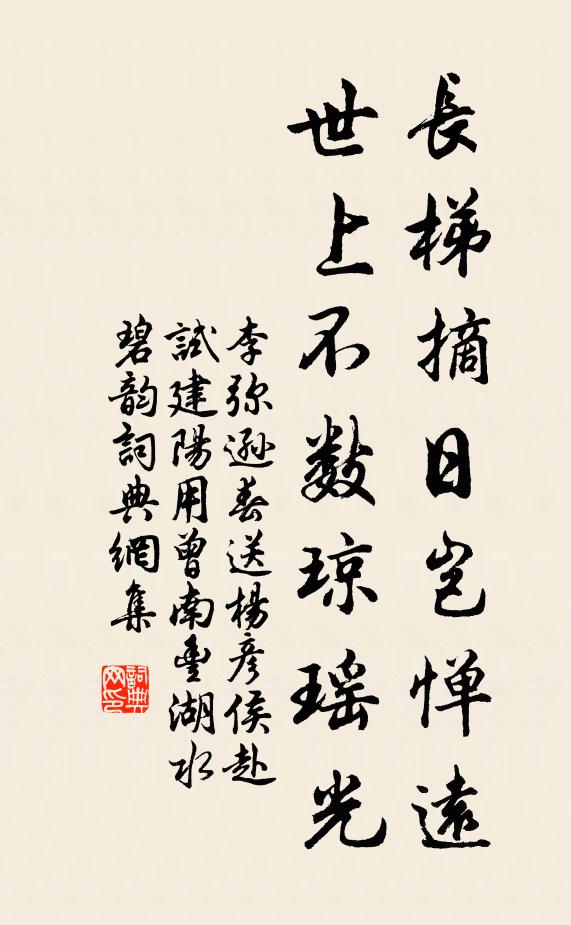 長梯摘日岂憚遠
世上不数琼瑶光
李弥遜春送楊彦侯赴
試建陽用曾南豐湖水
碧韵詞典網集
詞典网印